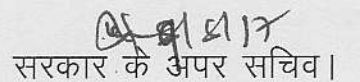 सरकार के अपर सचिव।